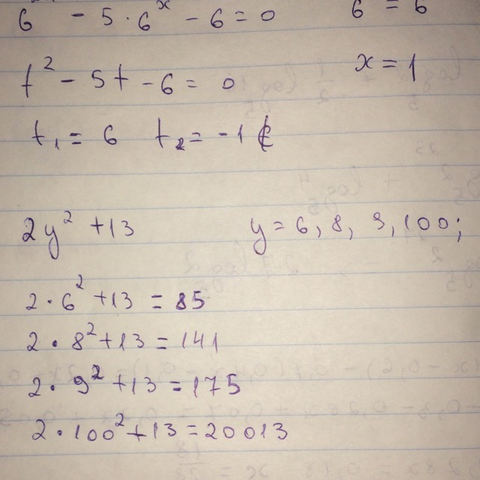 6 - 5·6^x - 6 = 0
6 = 6
t² - 5t - 6 = 0
x = 1
t₁ = 6 t₂ = -1
2y² + 13
y = 6, 8, 9, 100;
2·6² + 13 = 85
2·8² + 13 = 141
2·9² + 13 = 175
2·100² + 13 = 20013